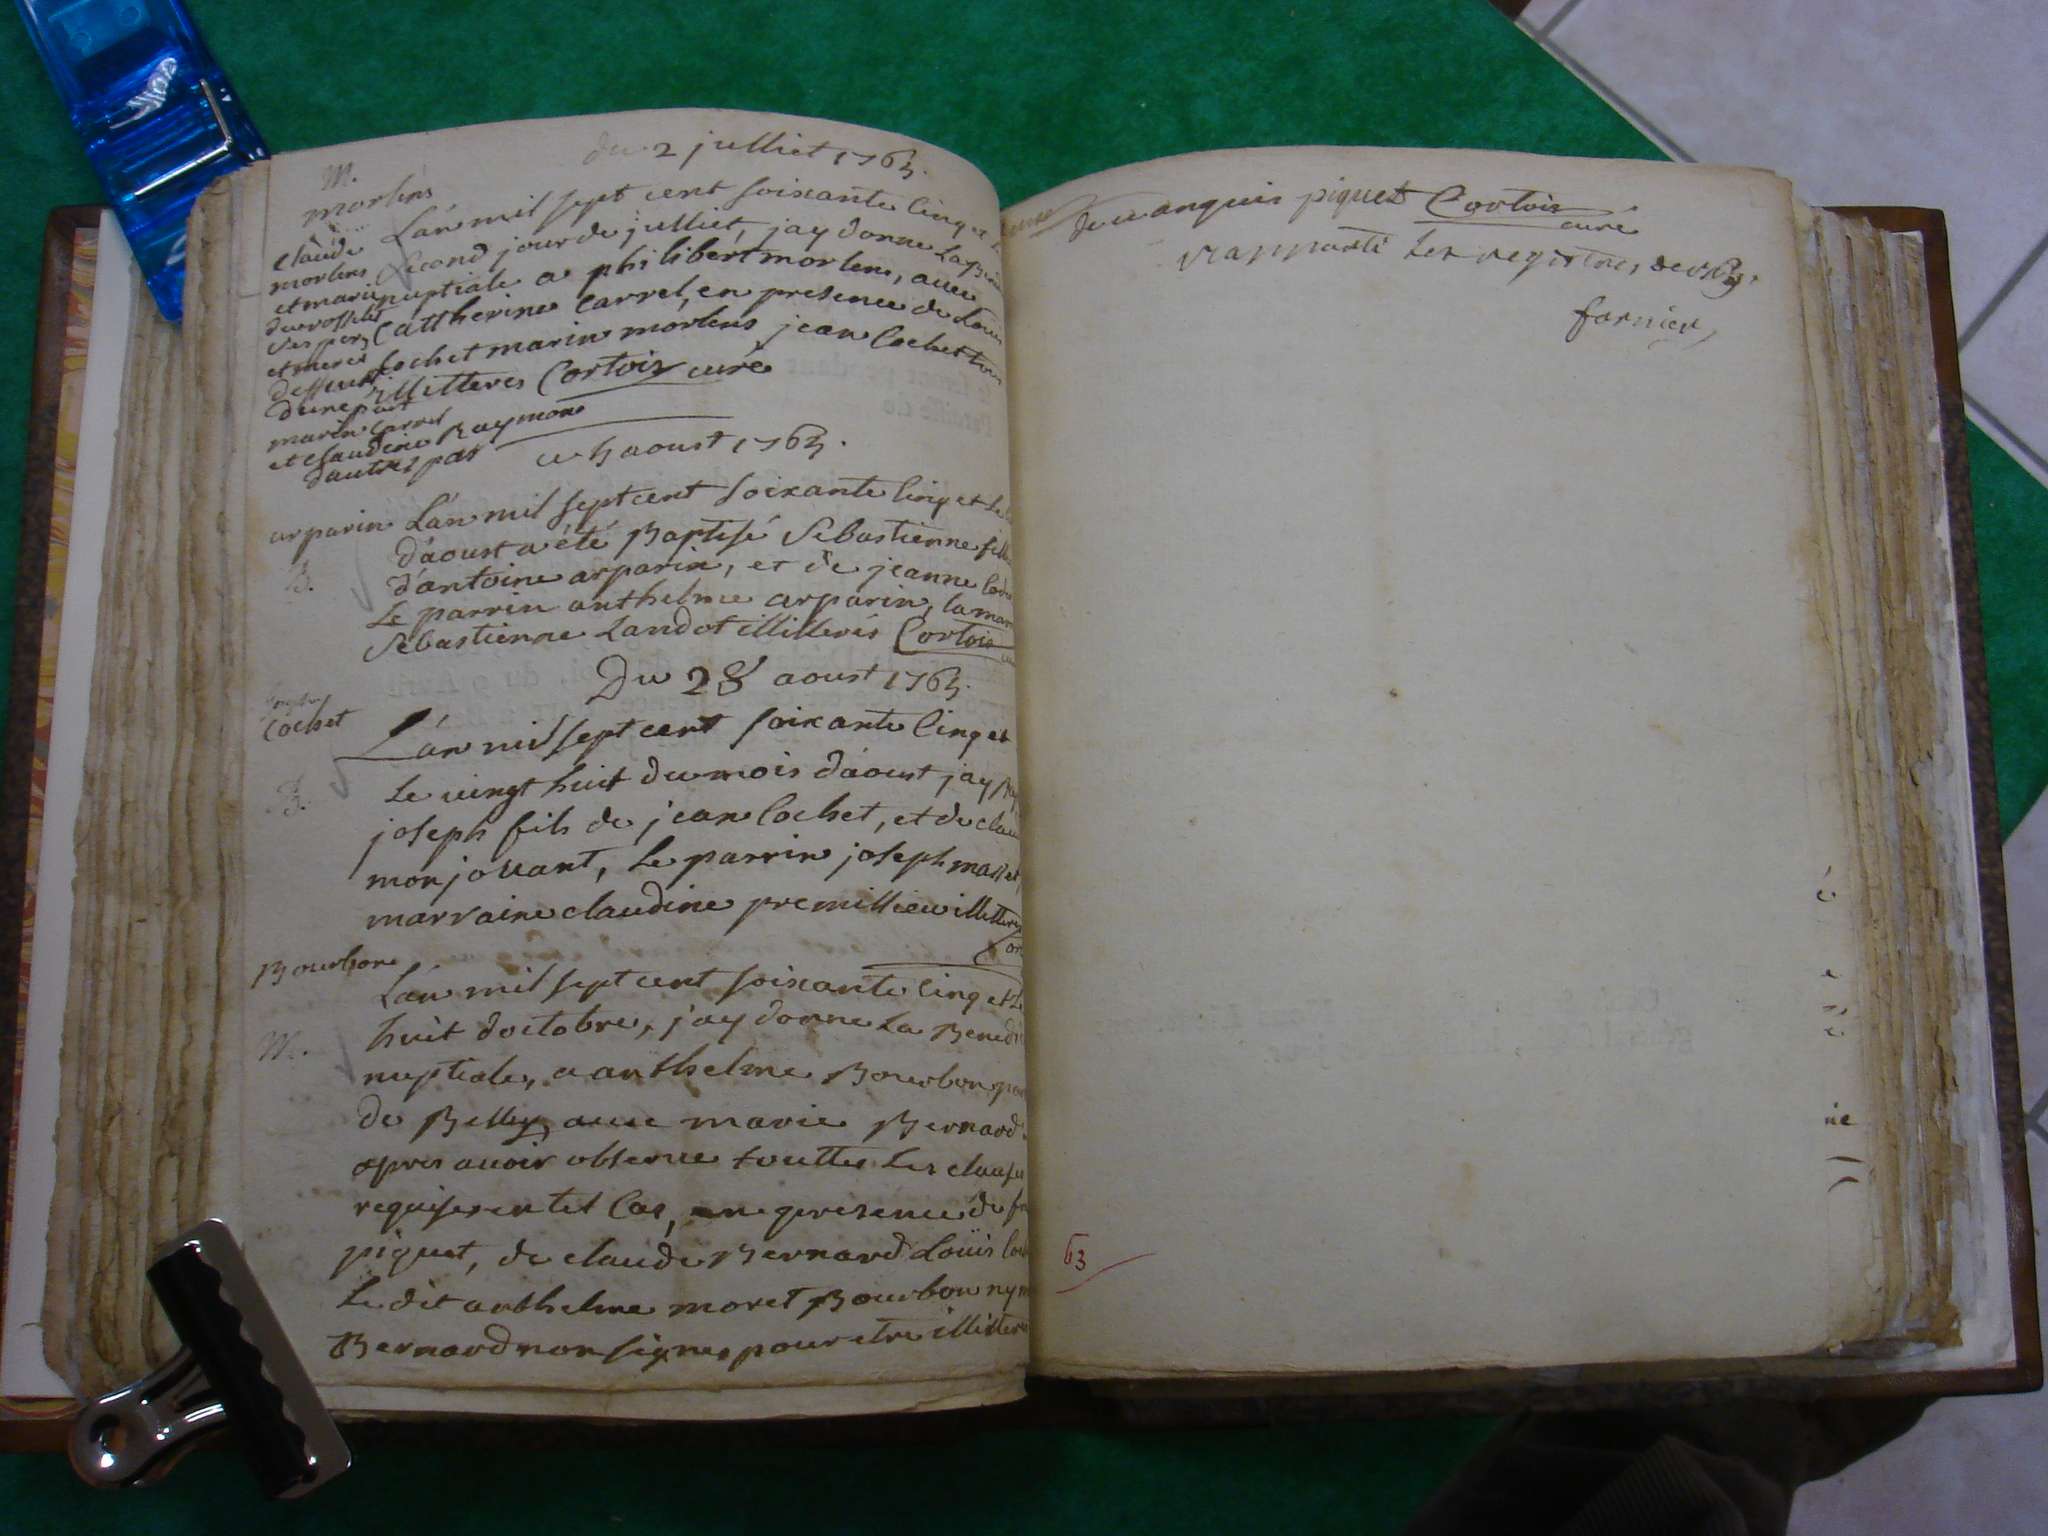 du 2 julliet 1765.
M.
morlens
Claude
morlens
et marie
ses per
et meres
deffunt
d'une part
marin Carrel
et claudine Raymond
d'autres part
L'an mil sept cent soixante Cinq et Le
second jour de julliet, jay donne La
nuptiale a philibert morlens, avec
Catherine Carrel, en presence de Louis
Cochet marin morlens jean Cochet tous
illitteres Cortois curé
ce 5 aoust 1765.
arparin
B.
L'an mil sept cent soixante Cinq et Le
d'aoust a été Baptisé Sebastienne fille
d'antoine arparin, et de jeanne
Le parrin anthelme arparin, la mar
Sebastienne Landot illitterés Cortois
Du 28 aoust 1765.
Cochet
B.
L'an mil sept cent soixante Cinq et
Le vingt huit du mois d'aoust jay
joseph fils de jean Cochet, et de clau
monjovant, Le parrin joseph
marraine claudine premillieu illitteres
Cor
Bourbon
M.
L'an mil sept cent soixante Cinq et Le
huit doctobre, jay donne La Benedi
nuptiale, a anthelme Bourbon
de Belley, avec marie Bernard
apres avoir observe touttes Les clauses
requises en tel Cas, en presence de
piquet, de claude Bernard Louis
Le dit anthelme moret Bourbon ny
Bernard non signes pour etre illittere
de anquis piquet Cortois
curé
rapporté Les registres de 1765.
fornier
63